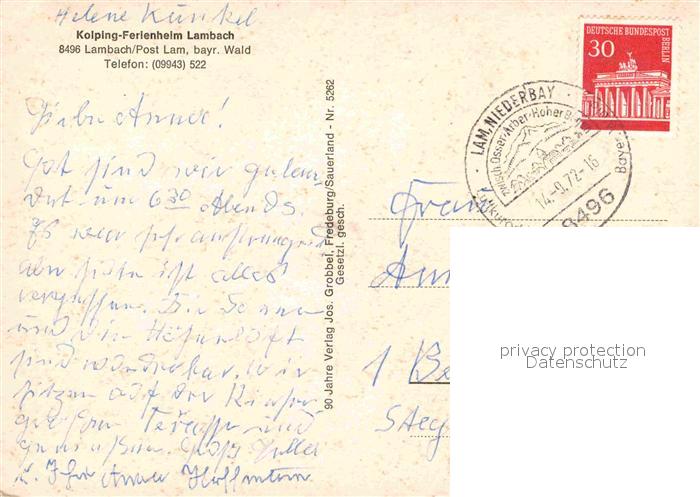 Helene Kunkel
Kolping-Ferienheim Lambach
8496 Lambach/Post Lam, bayr. Wald
Telefon: (09943) 522
Liebe Anna!
Gut sind wir gelan-
det um 6 30 Abends.
Es war sehr anstrengend
aber heute ist alles
vergessen. Die Sonne
und die Höhenluft
sind wunderbar. Wir
sitzen auf der
Terasse und
geniessen.
90 Jahre Verlag Jos. Grobbel, Fredeburg/Sauerland - Nr. 5262
Gesetzl. gesch.
DEUTSCHE BUNDESPOST
BERLIN
30
LAM, NIEDERBAY.
14.-9.72-16
8496
Frau
1 Be
privacy protection
Datenschutz